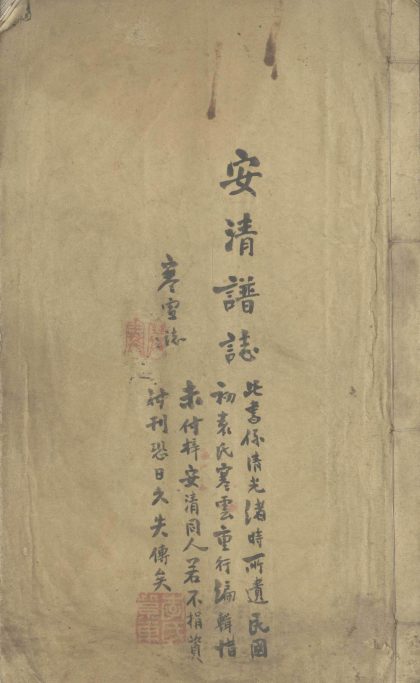 安清譜誌
寒雲誌
此書係清光緒時所遺民國
初袁氏寒雲重行編輯惜
未付梓安清同人若不捐資
付刊恐日久失傳矣